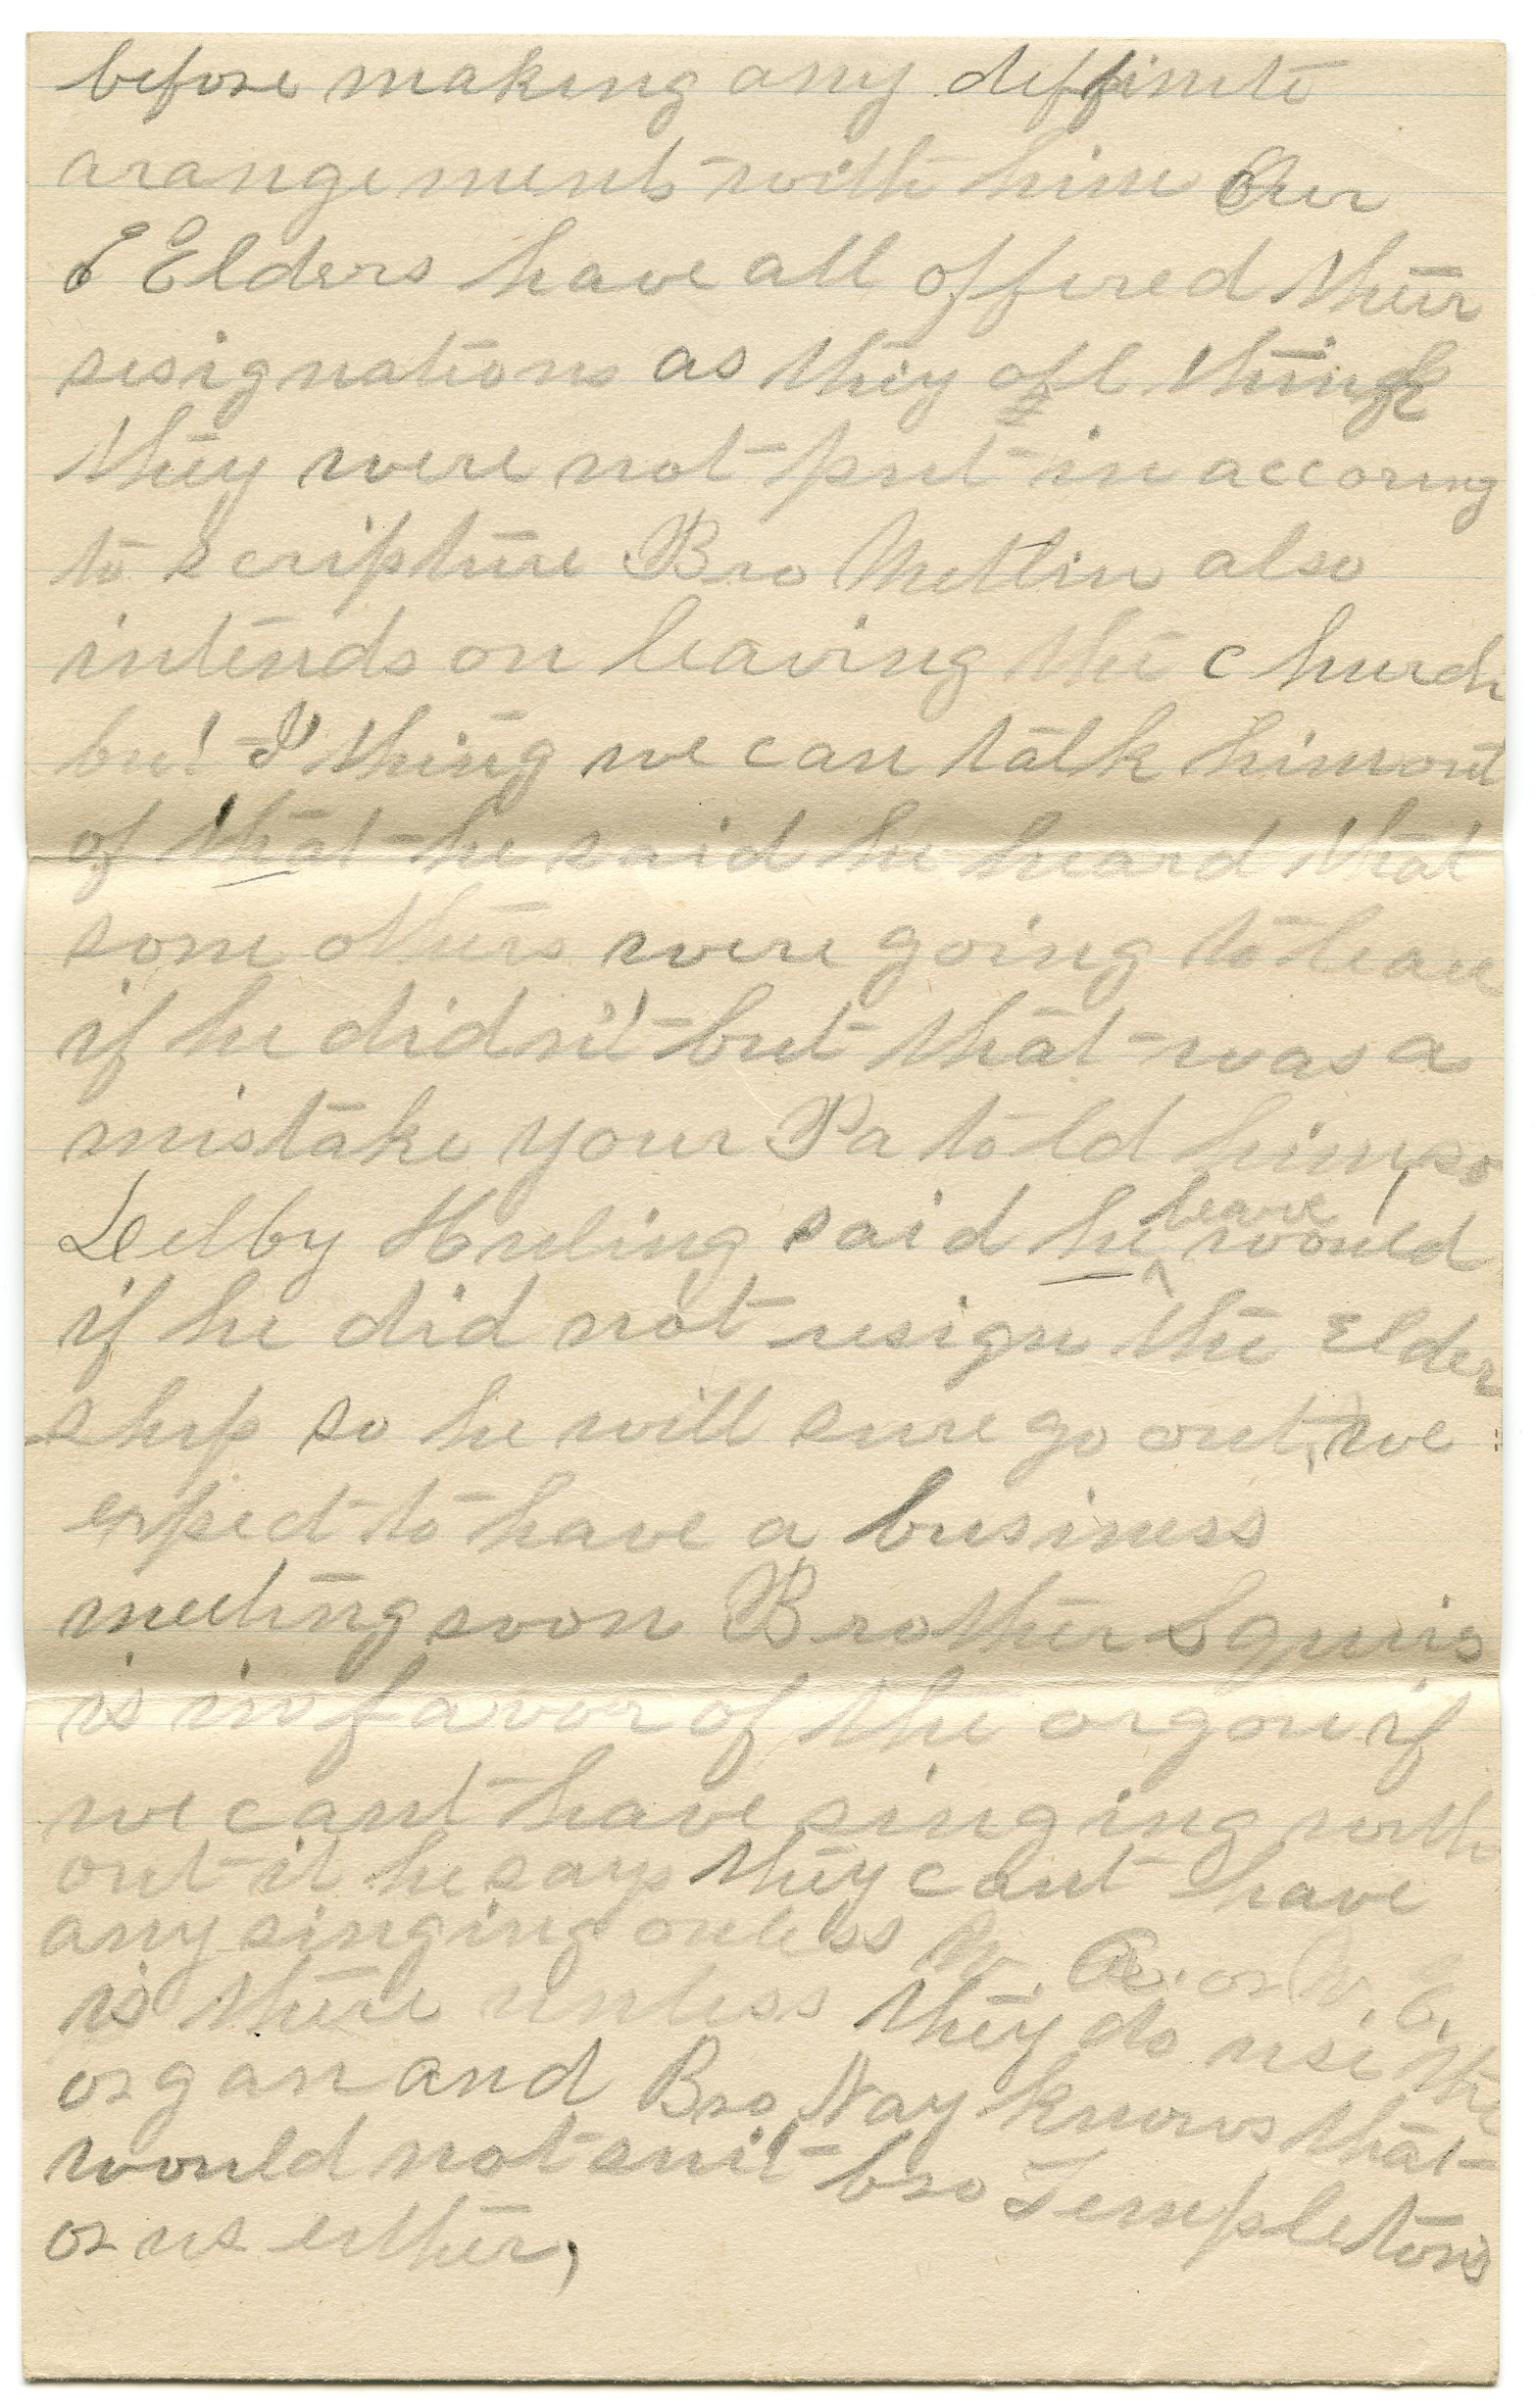 before making any deffinite
arangements with him Our
Elders have all offered their
resignations as they all think
they were not put in accoring
to scripture Bro Metlin also
intends on leaving the church
but I thing we can talk him out
of that he said he heard that
some others were going to leave
if he didn't but that was a
mistake your Pa told him so
Huling said he leave would
if he did not resign the Elder
ship so he will sure go out, we
expect to have a business
meeting soon Brother Squirs
is in favor of the organ if
we cant have singing with
out it he says they cant have
any singing onless W. A. or W. E.
is there unless they do use the
organ and Bro Nay knows that
would not suit bro Templetons
or us either,